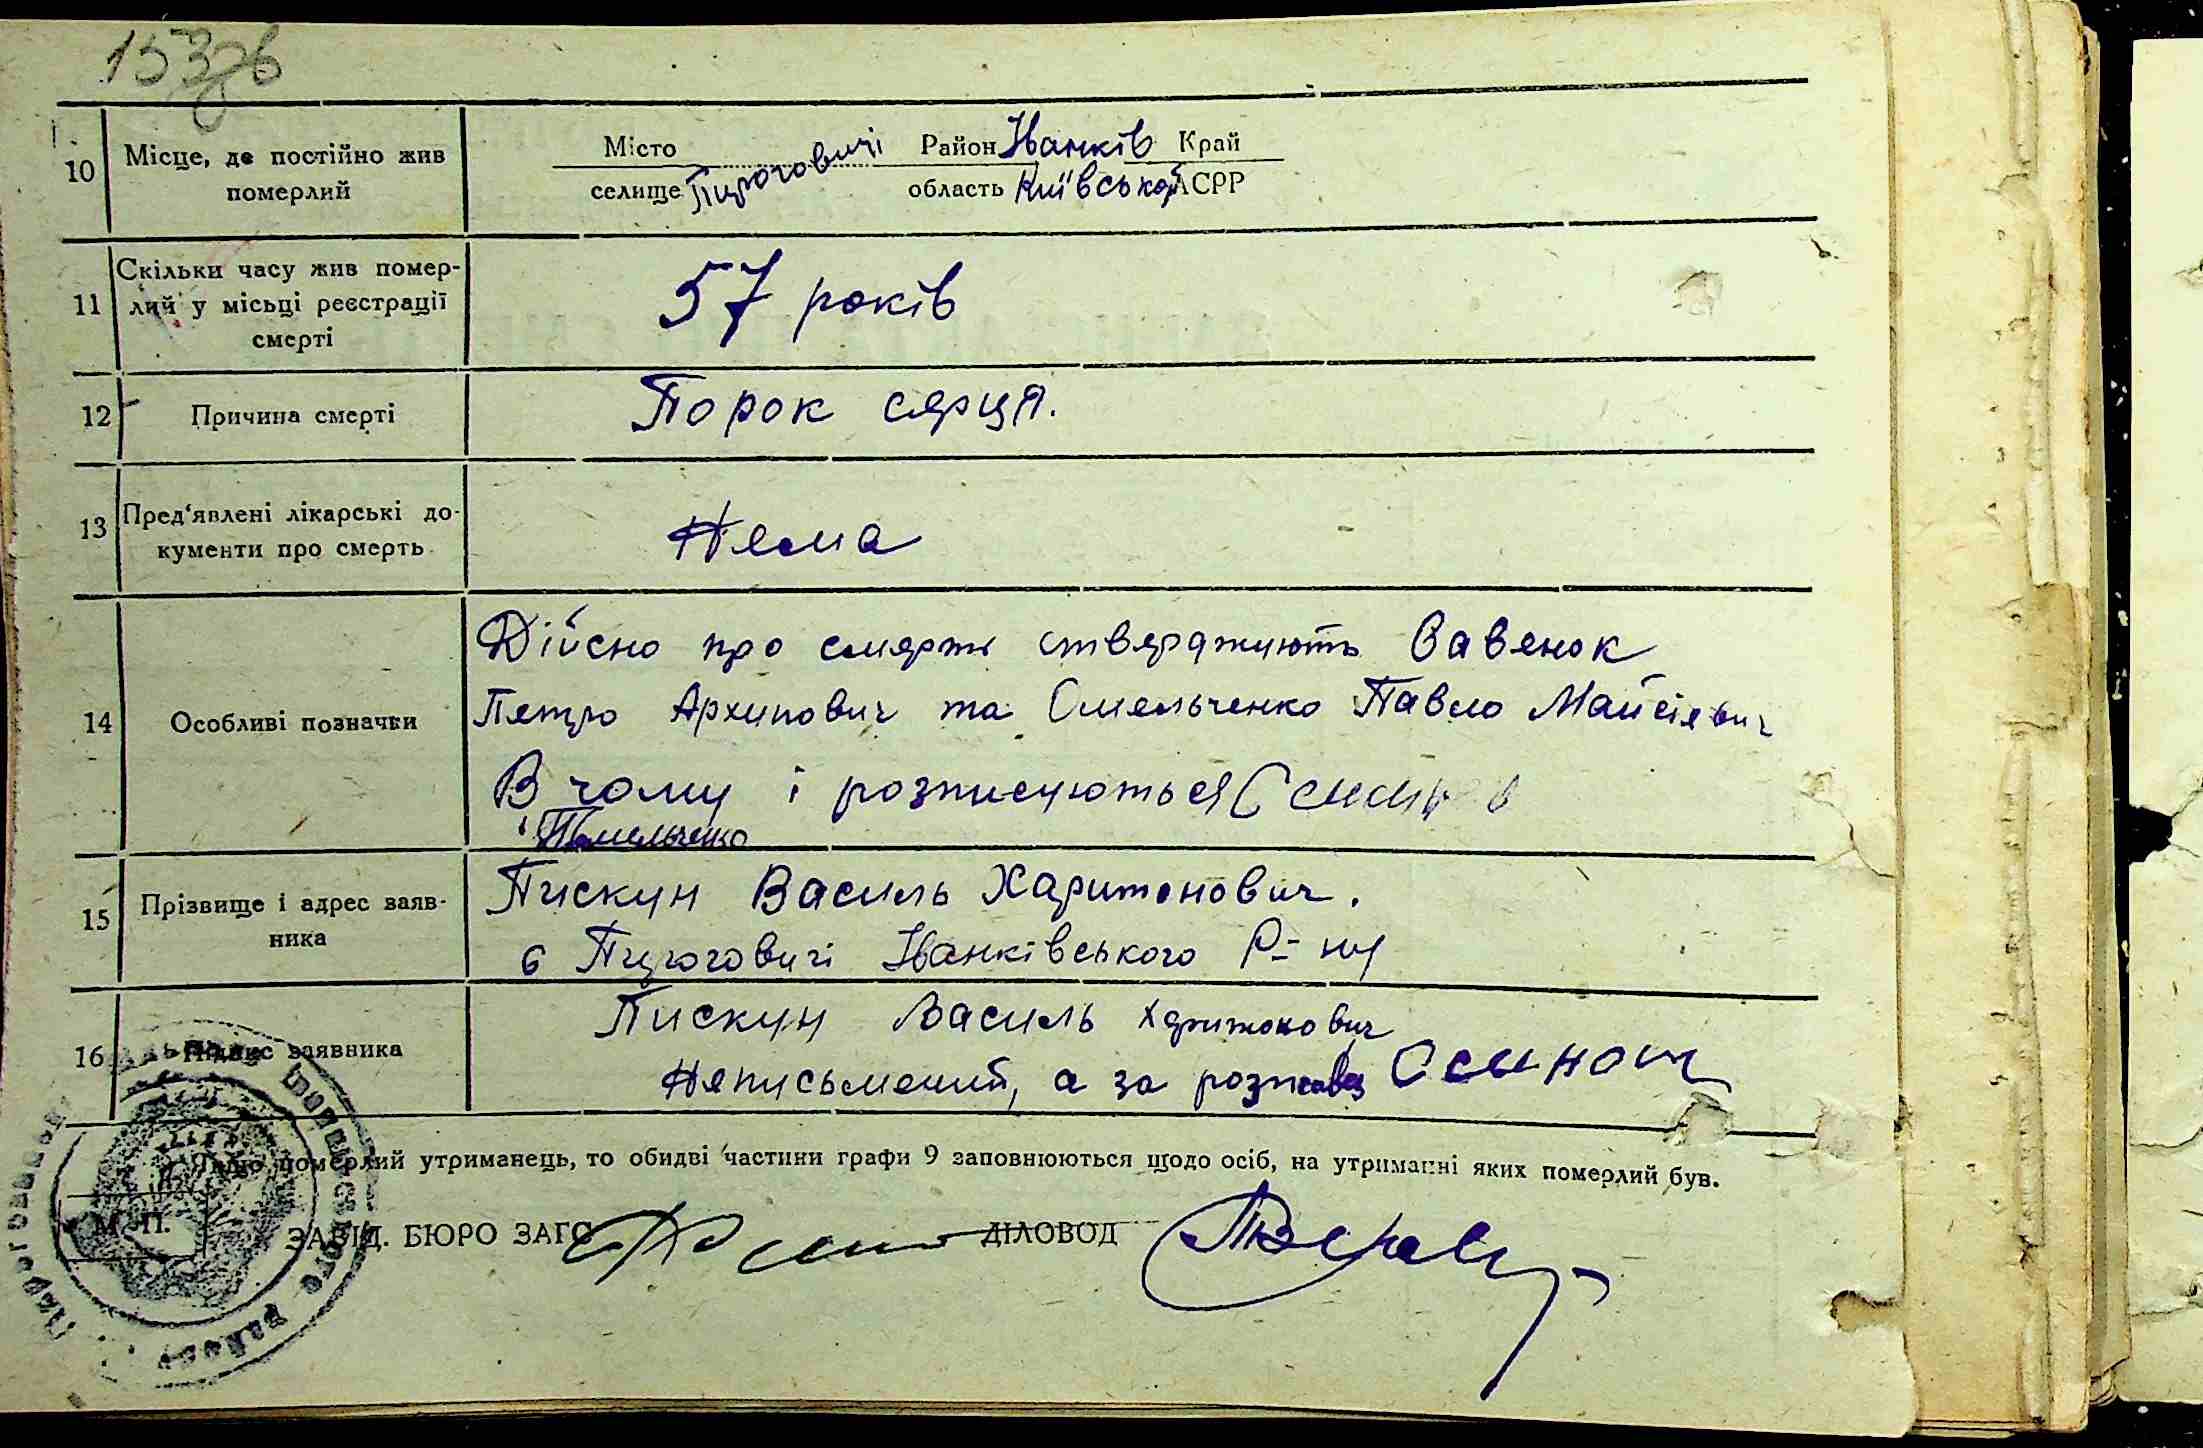 153зв
10 Місце, де постійно жив померлий
Місто Район Іванків Край
селище Пироговичі область Київськой АСРР
11 Скільки часу жив помер-
лий у місьці реєстрації
смерті
57 років
12 Причина смерті
Порок серця.
13 Пред'явлені лікарські до-
кументи про смерть
Нема
14 Особливі позначки
Дійсно про смерть стверджують Савенок
Петро Архипович та Омельченко Павло Майсієвич
В чому і розписуються
Омельченко
15 Прізвище і адрес заяв-
ника
Пискун Василь Харитонович.
с Пироговичі Іванківського Р-ну
16 Підпис заявника
Пискун Василь Харитонович
Неписьмений, а за
Якщо померлий утриманець, то обидві частини графи 9 заповнюються щодо осіб, на утриманні яких померлий був.
М. П. ЗАВІД. БЮРО ЗАГС ДІЛОВОД